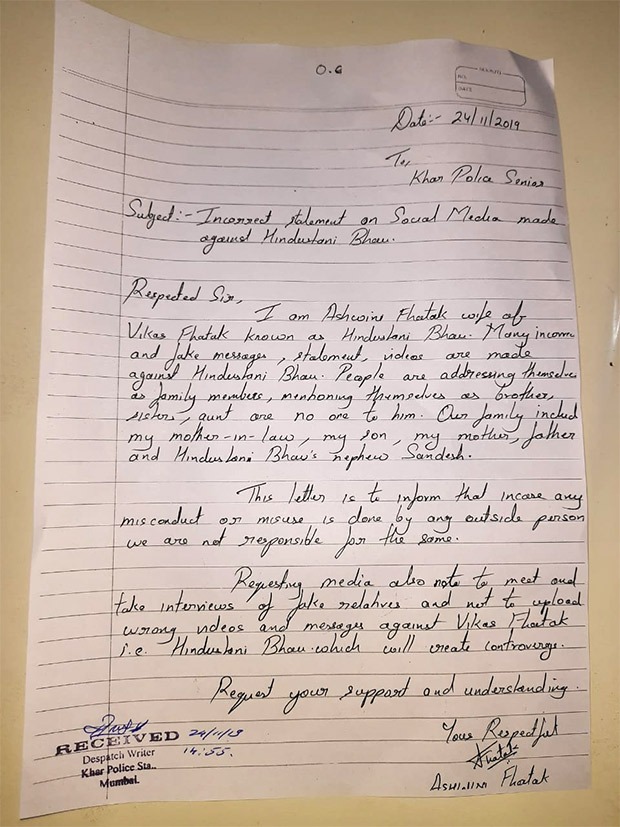 O.C
DATE
Date:- 24/11/2019
To,
Khar Police Senior
Subject:- Incorrect statement on Social Media made
against Hindustani Bhau.
Respected Sir,
I am Ashwini Fhatak wife of
Vikas Fhatak known as Hindustani Bhau. Many incorr
and fake messages, statement, videos are made
against Hindustani Bhau. People are addressing themselves
as family members, mentioning themselves as brother,
sister, aunt are no one to him. Our family includ
my mother-in-law, my son, my mother, father
and Hindustani Bhau's nephew Sandesh.
This letter is to inform that incase any
misconduct or misuse is done by any outside person
we are not responsible for the same.
Requesting media also note to meet and
take interviews of fake relatives and not to upload
wrong videos and messages against Vikas Fhatak
i.e. Hindustani Bhau. which will create controversy.
Request your support and understanding.
RECEIVED 24/11/19
Despatch Writer 14:55.
Khar Police Sta..
Mumbai.
Yous Respectful
Ashwini Fhatak